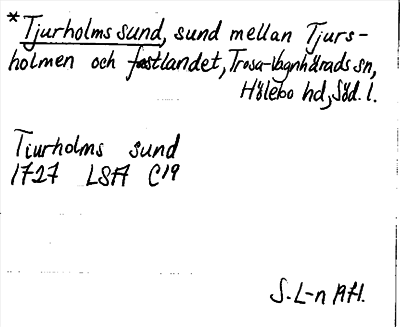 * Tjurholms sund, sund mellan Tjurs-
holmen och fastlandet, Trosa-Vagnhärads sn,
Hölebo hd, Söd. l.
Tiurholms sund
1727 LSA C19
S. L-n Afl.